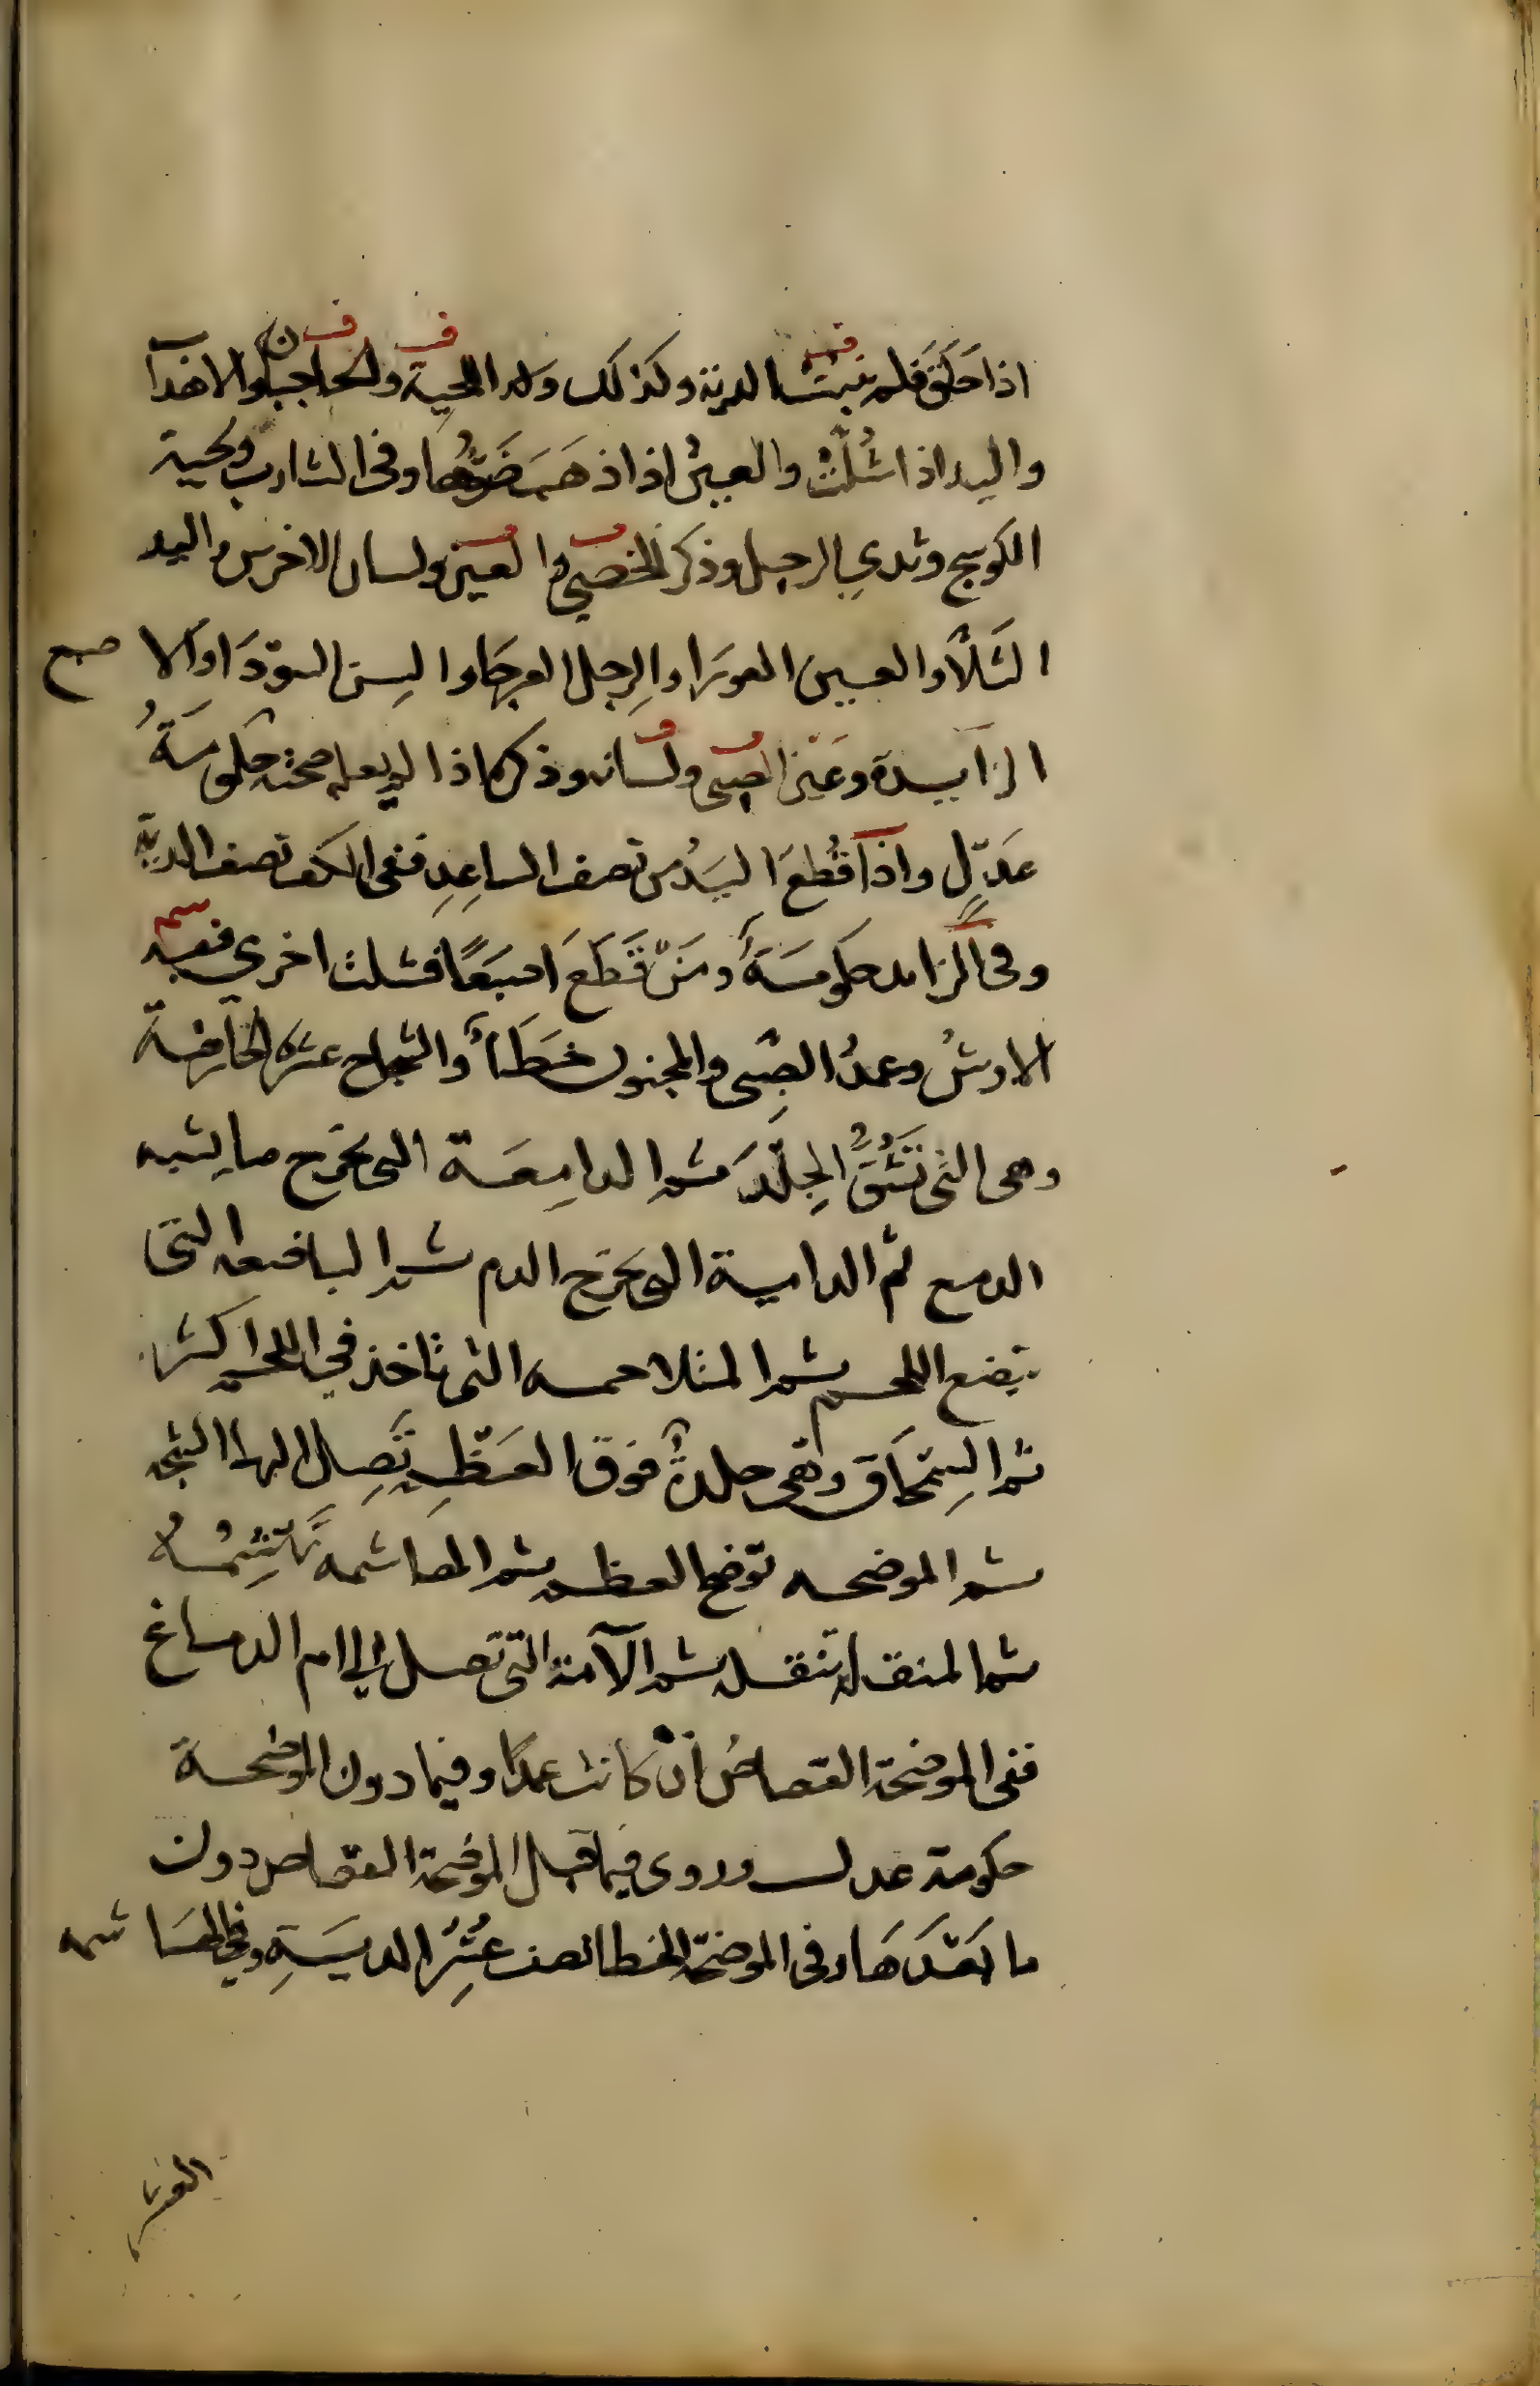 اذا حَلَقَ فلم ينبت الدية وكذلك واللحية والحاجبان والاهداب
واليد اذا شُلَّتْ والعينُ اذا ذهبَ ضَوْءُها وفى الشارب ولحية
الكوسج وثدي الرجل وذكر الخصي والعنين ولسان الاخرس واليد
الشَلَّا والعين العورا والرجل العرجا والسن السوْدَا والاصبع
الزايدة وعَيْن الصبى ولسانه وذكره اذا لم يعلم صحته حكومَةُ
عَدْلٍ واذا قُطِعَ اليَدُ من نصف الساعِدِ ففى الكف نصف الدية
وفى الزايد حكومَةٌ ومَنْ قَطَعَ اصبَعًا فشلت اخرى ففيه
الارشُ وعمدُ الصَّبى والمجنون خَطَأٌ والشجاج عشرة الخارصة
وهى التى تَشُقُّ الجِلْدَ ثم الدامِعَة التى تخرج ما يشبه
الدمع ثم الدامية التى تخرج الدم ثم الباضعه التى
تبضع اللحم ثم المتلاحمه التى تاخذ في اللحم اكثر
ثم السِمْحَاق وهى جلدةٌ فوق العَظْمِ تَصِل اليها الشجه
ثم الموضحه توضح العظم ثم الهاشمه تَهْشِمُهُ
ثم المنقلة تنقله ثم الآمة التى تصل الي ام الدماغ
ففى الموضحة القصاصُ انْ كانت عمدًا وفيما دون الموضحة
حكومة عدل وروى فيما قبل الموضحة القصاص دون
ما بَعْدَهَا وفى الموضحة الخطا نصف عُشْرِ الديَةِ وفي الهَاشمه
العشر